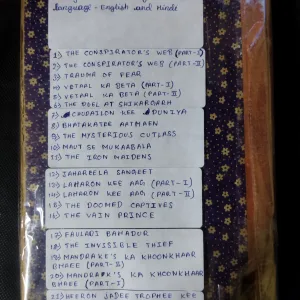 language - English and Hindi
1) THE CONSPIRATOR'S WEB (PART-I)
2) THE CONSPIRATOR'S WEB (PART-II)
3) TRAUMA OF FEAR
4) VETAAL KA BETA (PART-I)
5) VETAAL KA BETA (PART-II)
6) THE DUEL AT SHIKARGARH
7) CHUDAILON KEE DUNIYA
8) BHATAKATEE AATMAEN
9) THE MYSTERIOUS CUTLASS
10) MAUT SE MUKAABALA
11) THE IRON MAIDENS
12) JAHAREELA SANGEET
13) LAHARON KEE AAG (PART-I)
14) LAHARON KEE AAG (PART-II)
15) THE DOOMED CAPTIVES
16) THE VAIN PRINCE
17) FAULADI BAHADUR
18) THE INVISIBLE THIEF
19) MANDRAKE'S KA KHOONKHAAR
BHAEE (PART-II)
20) MANDRAKE'S KA KHOONKHAAR
BHAEE (PART-I)
21) HEERON JADEE TROPHEE KEE